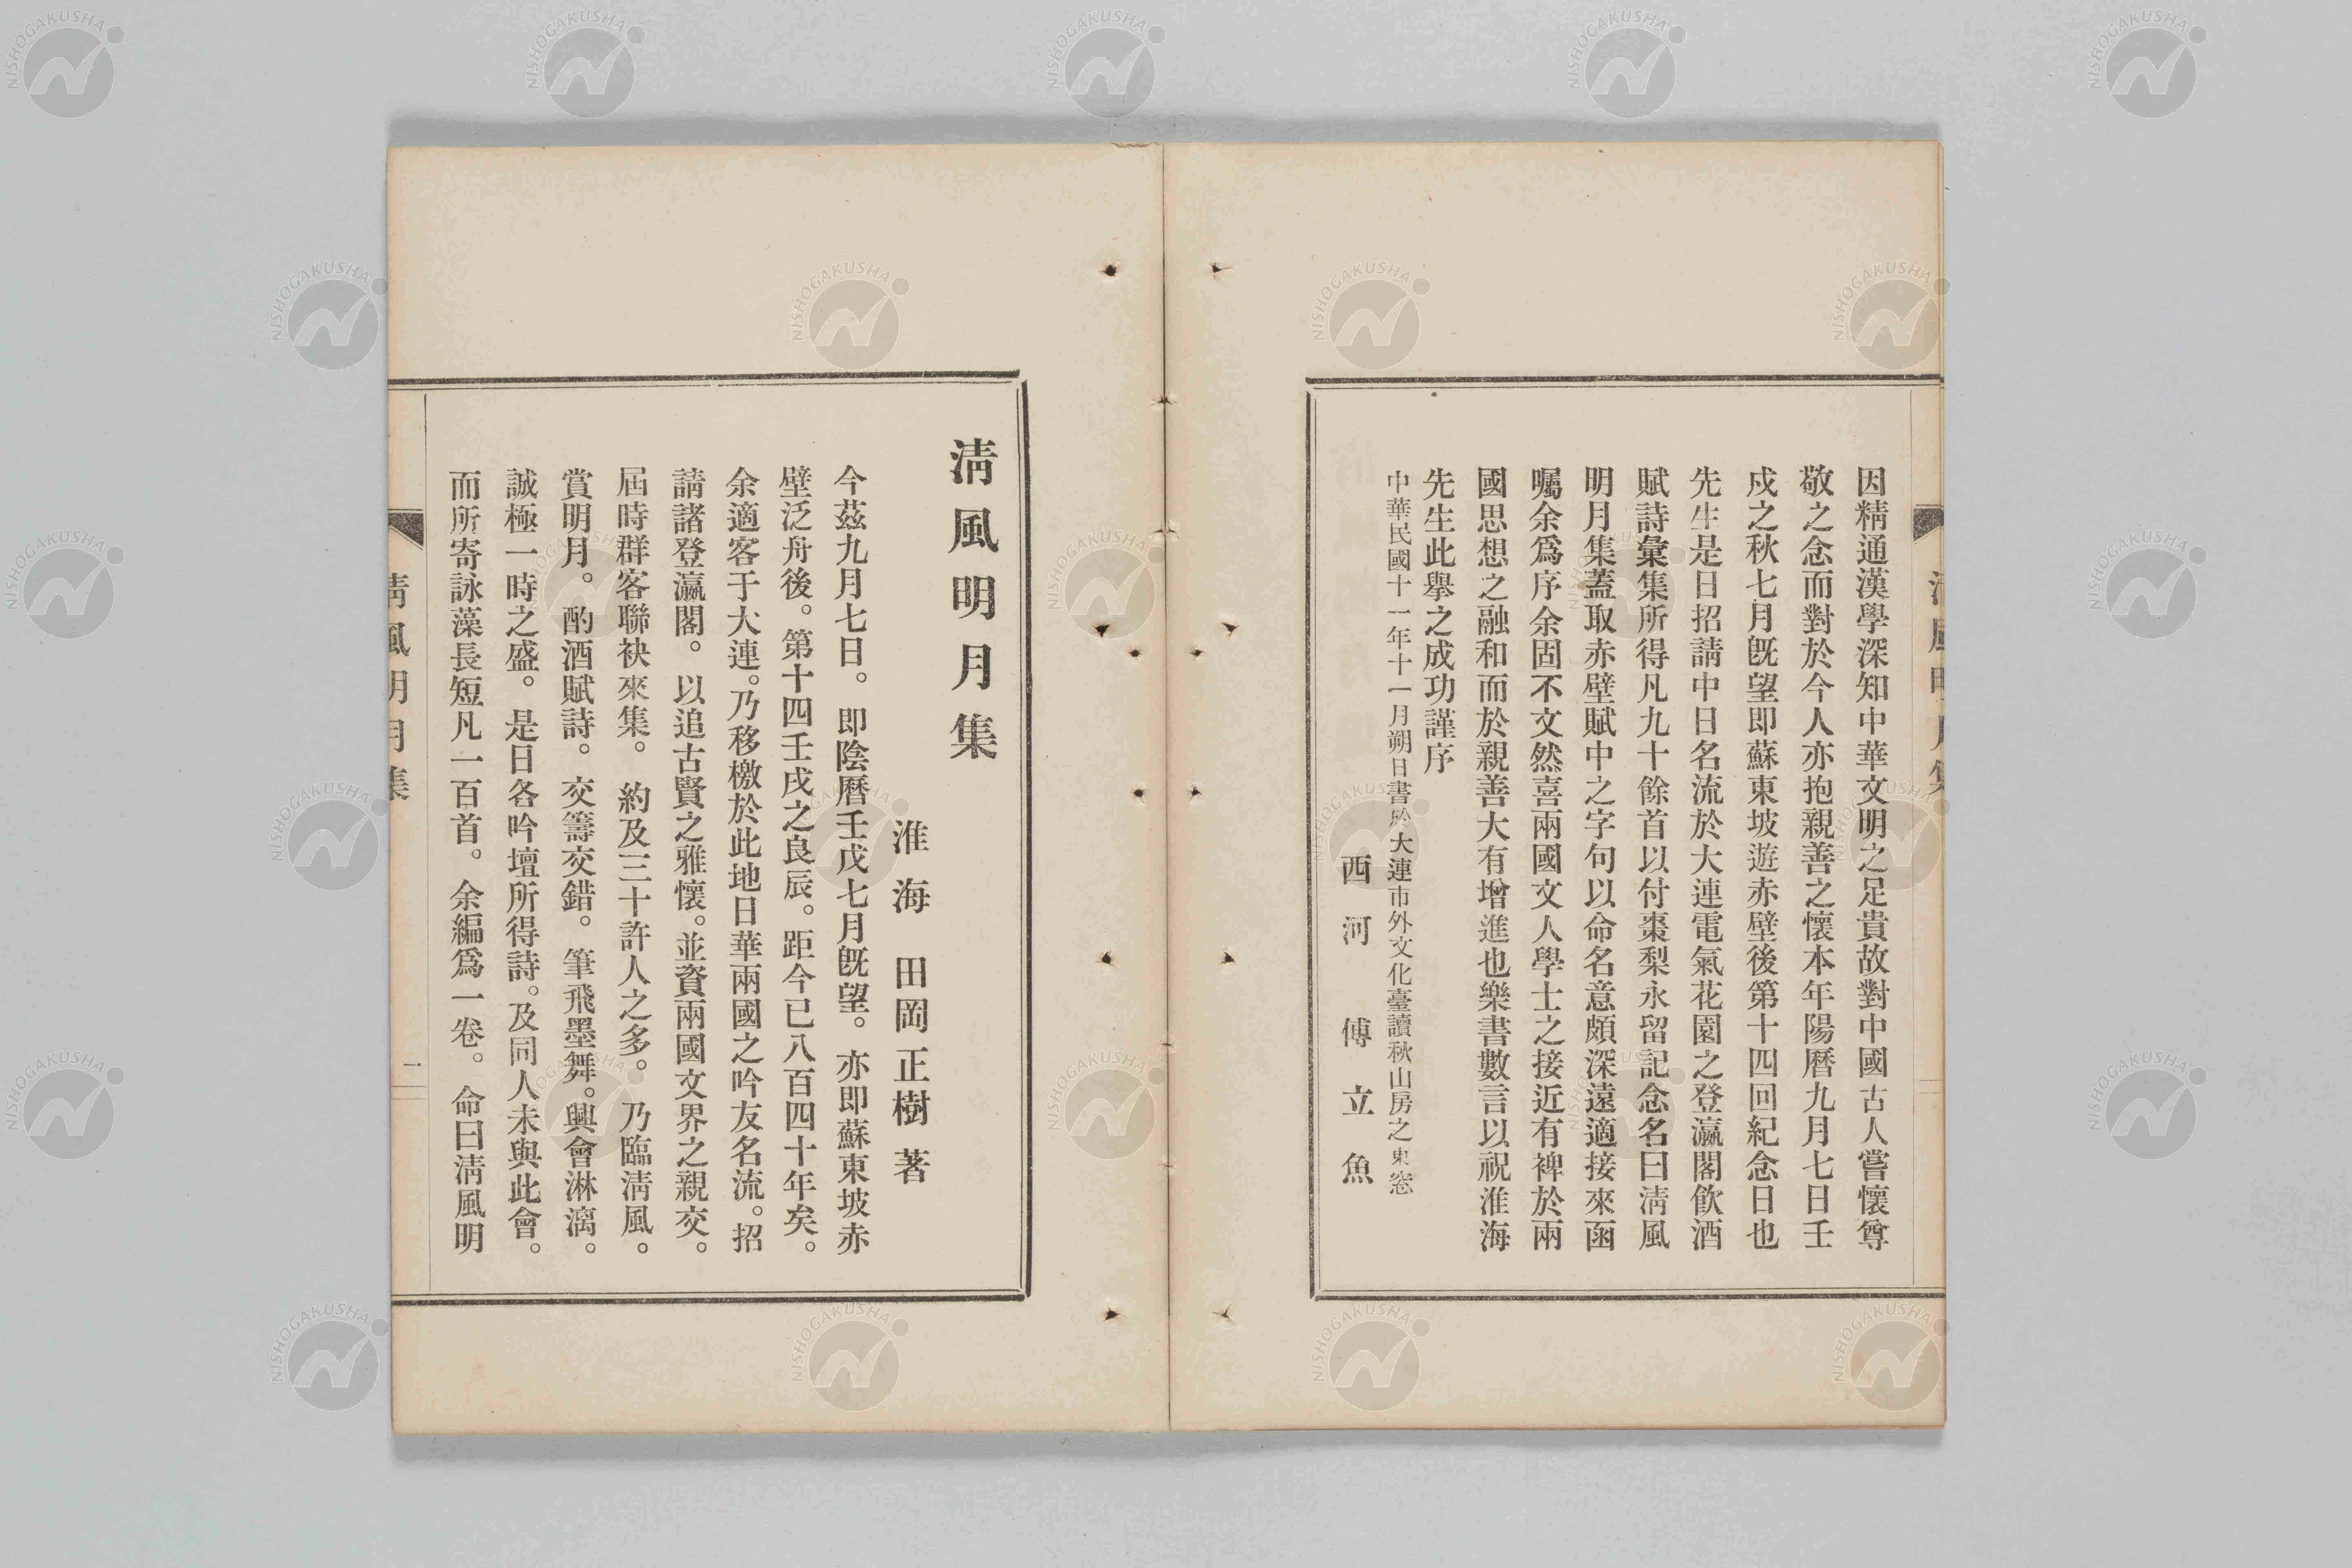 因精通漢學深知中華文明之足貴故對中國古人嘗懷尊
敬之念而對於今人亦抱親善之懷本年陽曆九月七日壬
戌之秋七月既望即蘇東坡遊赤壁後第十四回紀念日也
先生是日招請中日名流於大連電氣花園之登瀛閣飲酒
賦詩彙集所得凡九十餘首以付棗梨永留記念名曰淸風
明月集蓋取赤壁賦中之字句以命名意頗深遠適接來函
囑余爲序余固不文然喜兩國文人學士之接近有裨於兩
國思想之融和而於親善大有增進也樂書數言以祝淮海
先生此擧之成功謹序
中華民國十一年十一月朔日書於大連市外文化臺讀秋山房之東窓
西河 傅立魚
淸風明月集
淮海 田岡正樹著
今茲九月七日。即陰曆壬戌七月既望。亦即蘇東坡赤
壁泛舟後。第十四壬戌之良辰。距今已八百四十年矣。
余適客于大連。乃移檄於此地日華兩國之吟友名流。招
請諸登瀛閣。以追古賢之雅懷。並資兩國文界之親交。
屆時群客聯袂來集。約及三十許人之多。乃臨淸風。
賞明月。酌酒賦詩。交籌交錯。筆飛墨舞。興會淋漓。
誠極一時之盛。是日各吟壇所得詩。及同人未與此會。
而所寄詠藻長短凡一百首。余編爲一卷。命曰淸風明
淸風明月集
一
NISHOGAKUSHA